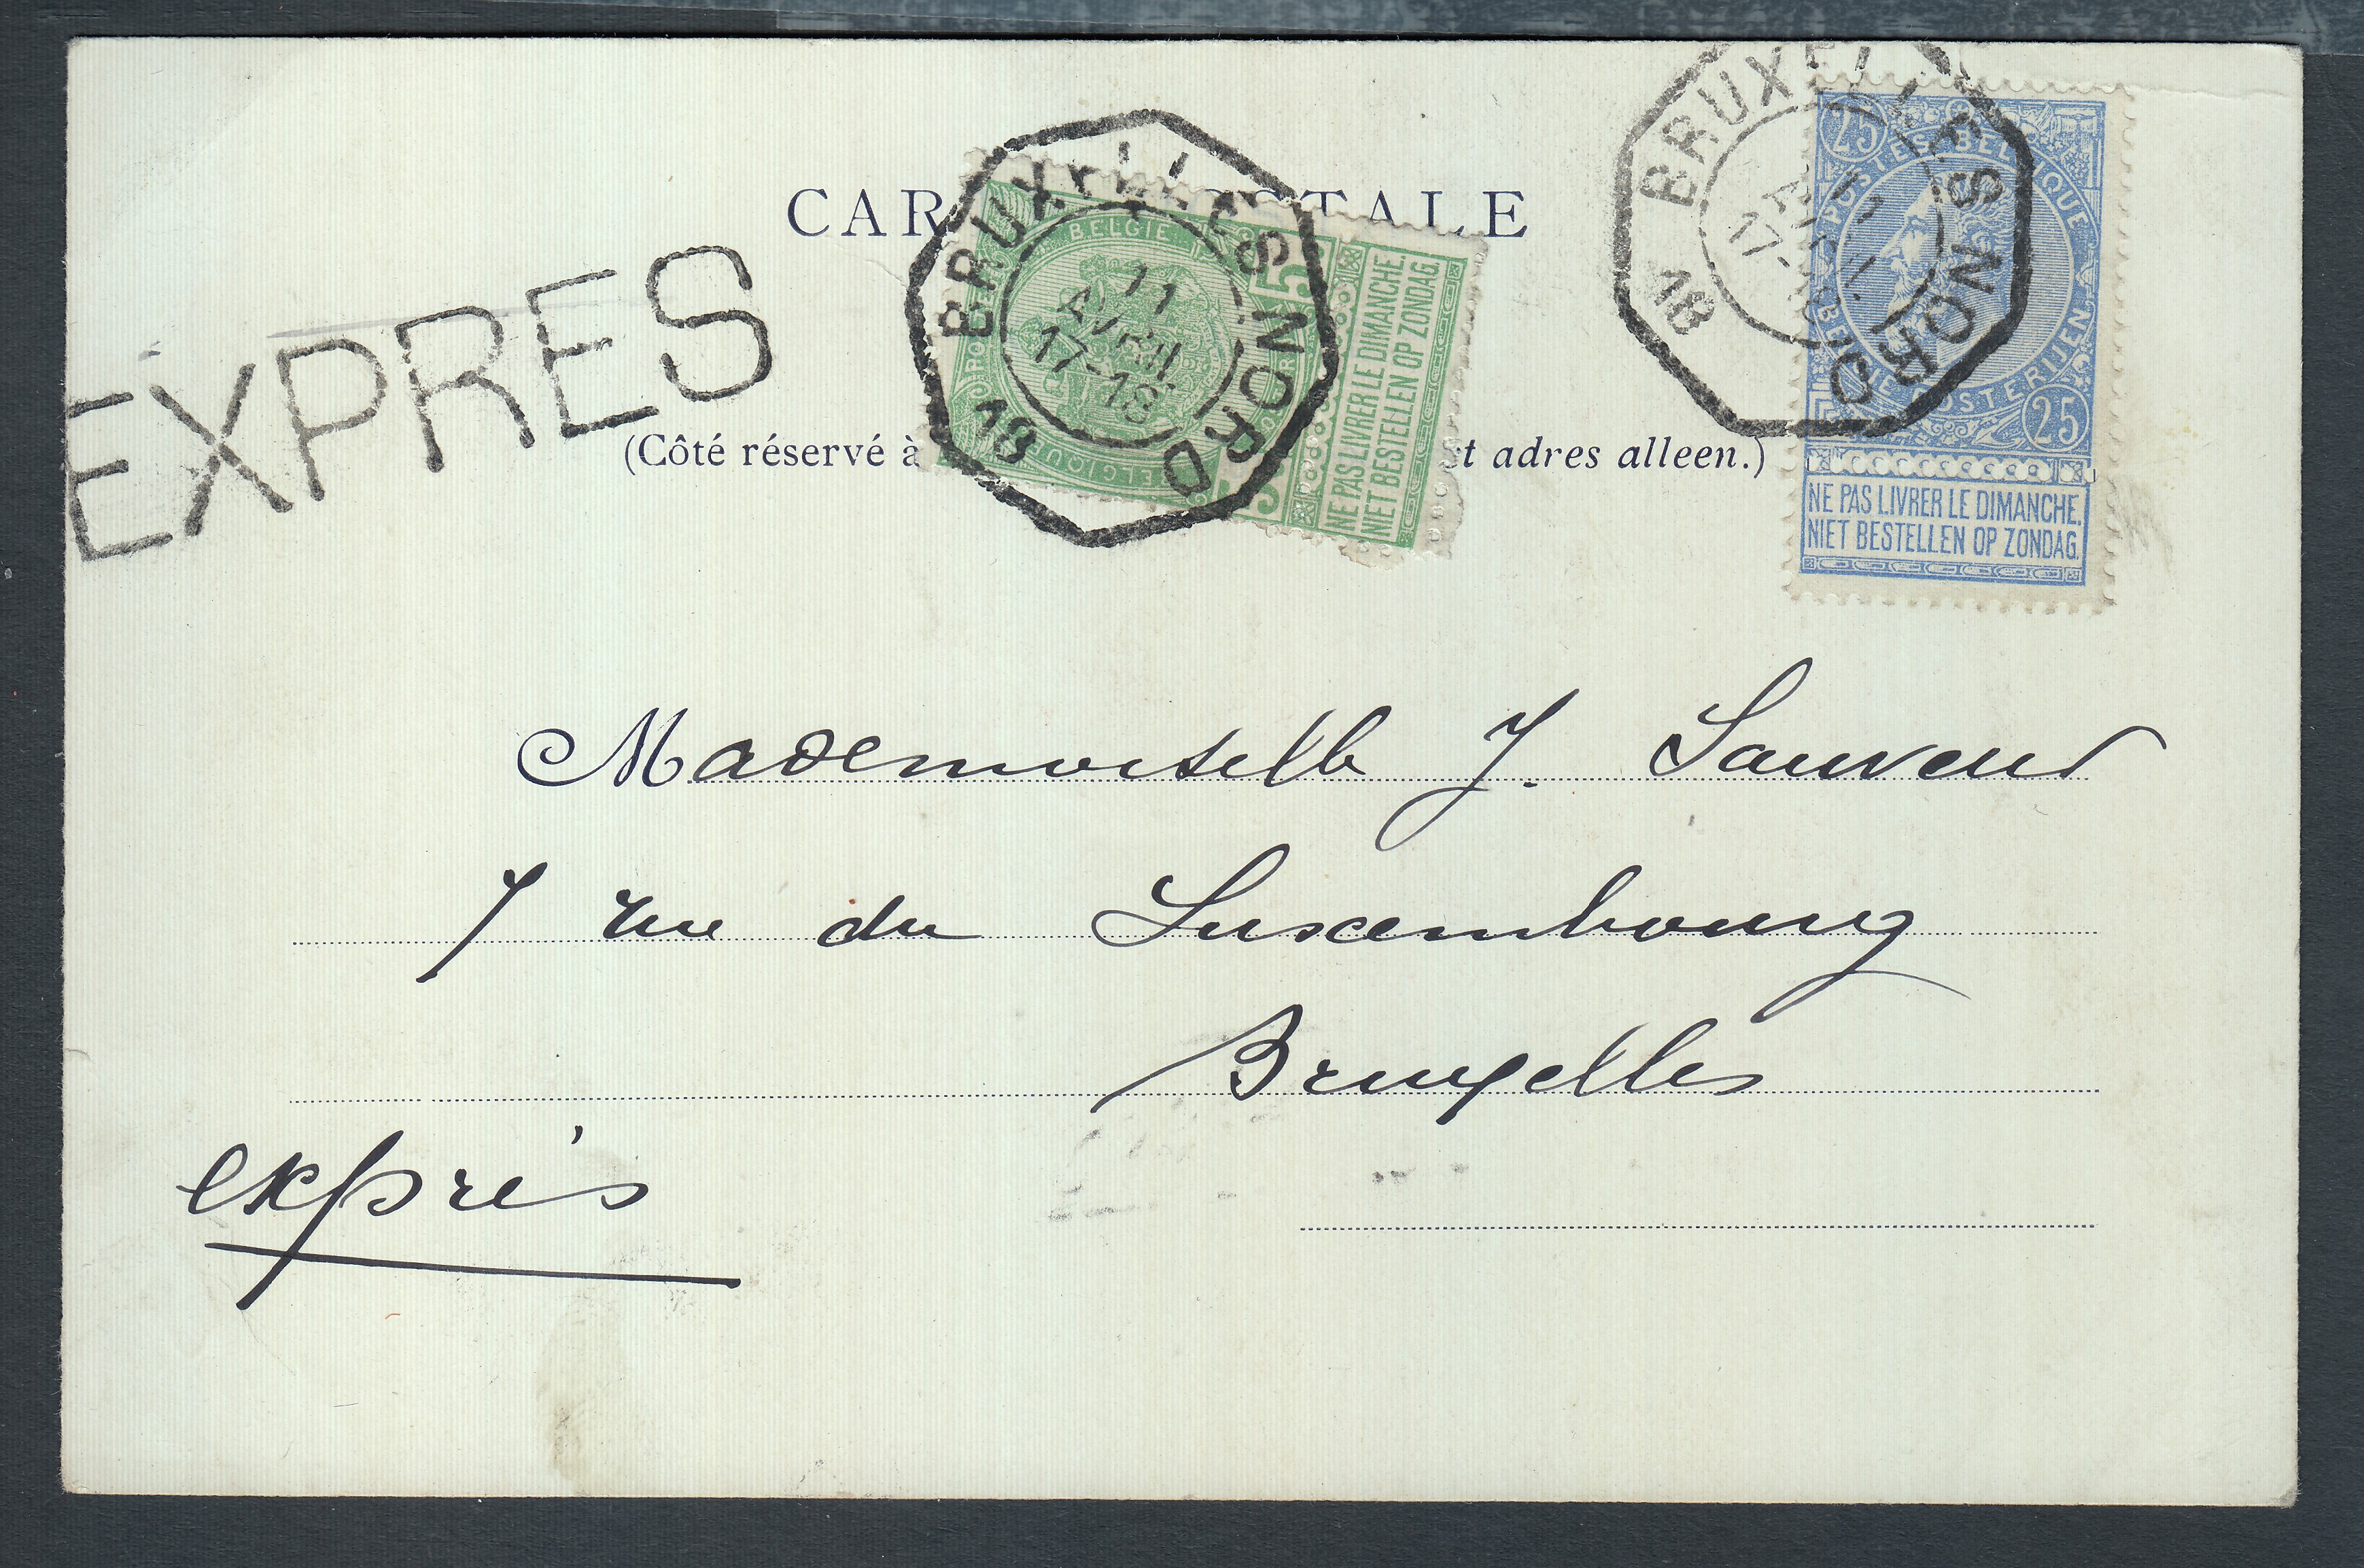 CAR TALE
EXPRES
(Côté réservé à et adres alleen.)
BELGIE
BELGIQUE
5
5
NE PAS LIVRER LE DIMANCHE.
NIET BESTELLEN OP ZONDAG.
BRUXELLES NORD
11
AVRIL
17-18
18
25
POSTES BELGIQUE
BELGIE POSTERIJEN
25
NE PAS LIVRER LE DIMANCHE.
NIET BESTELLEN OP ZONDAG.
BRUXELLES NORD
17-18
18
Mademoiselle J. Sauveur
7 rue du Luxembourg
Bruxelles
exprés